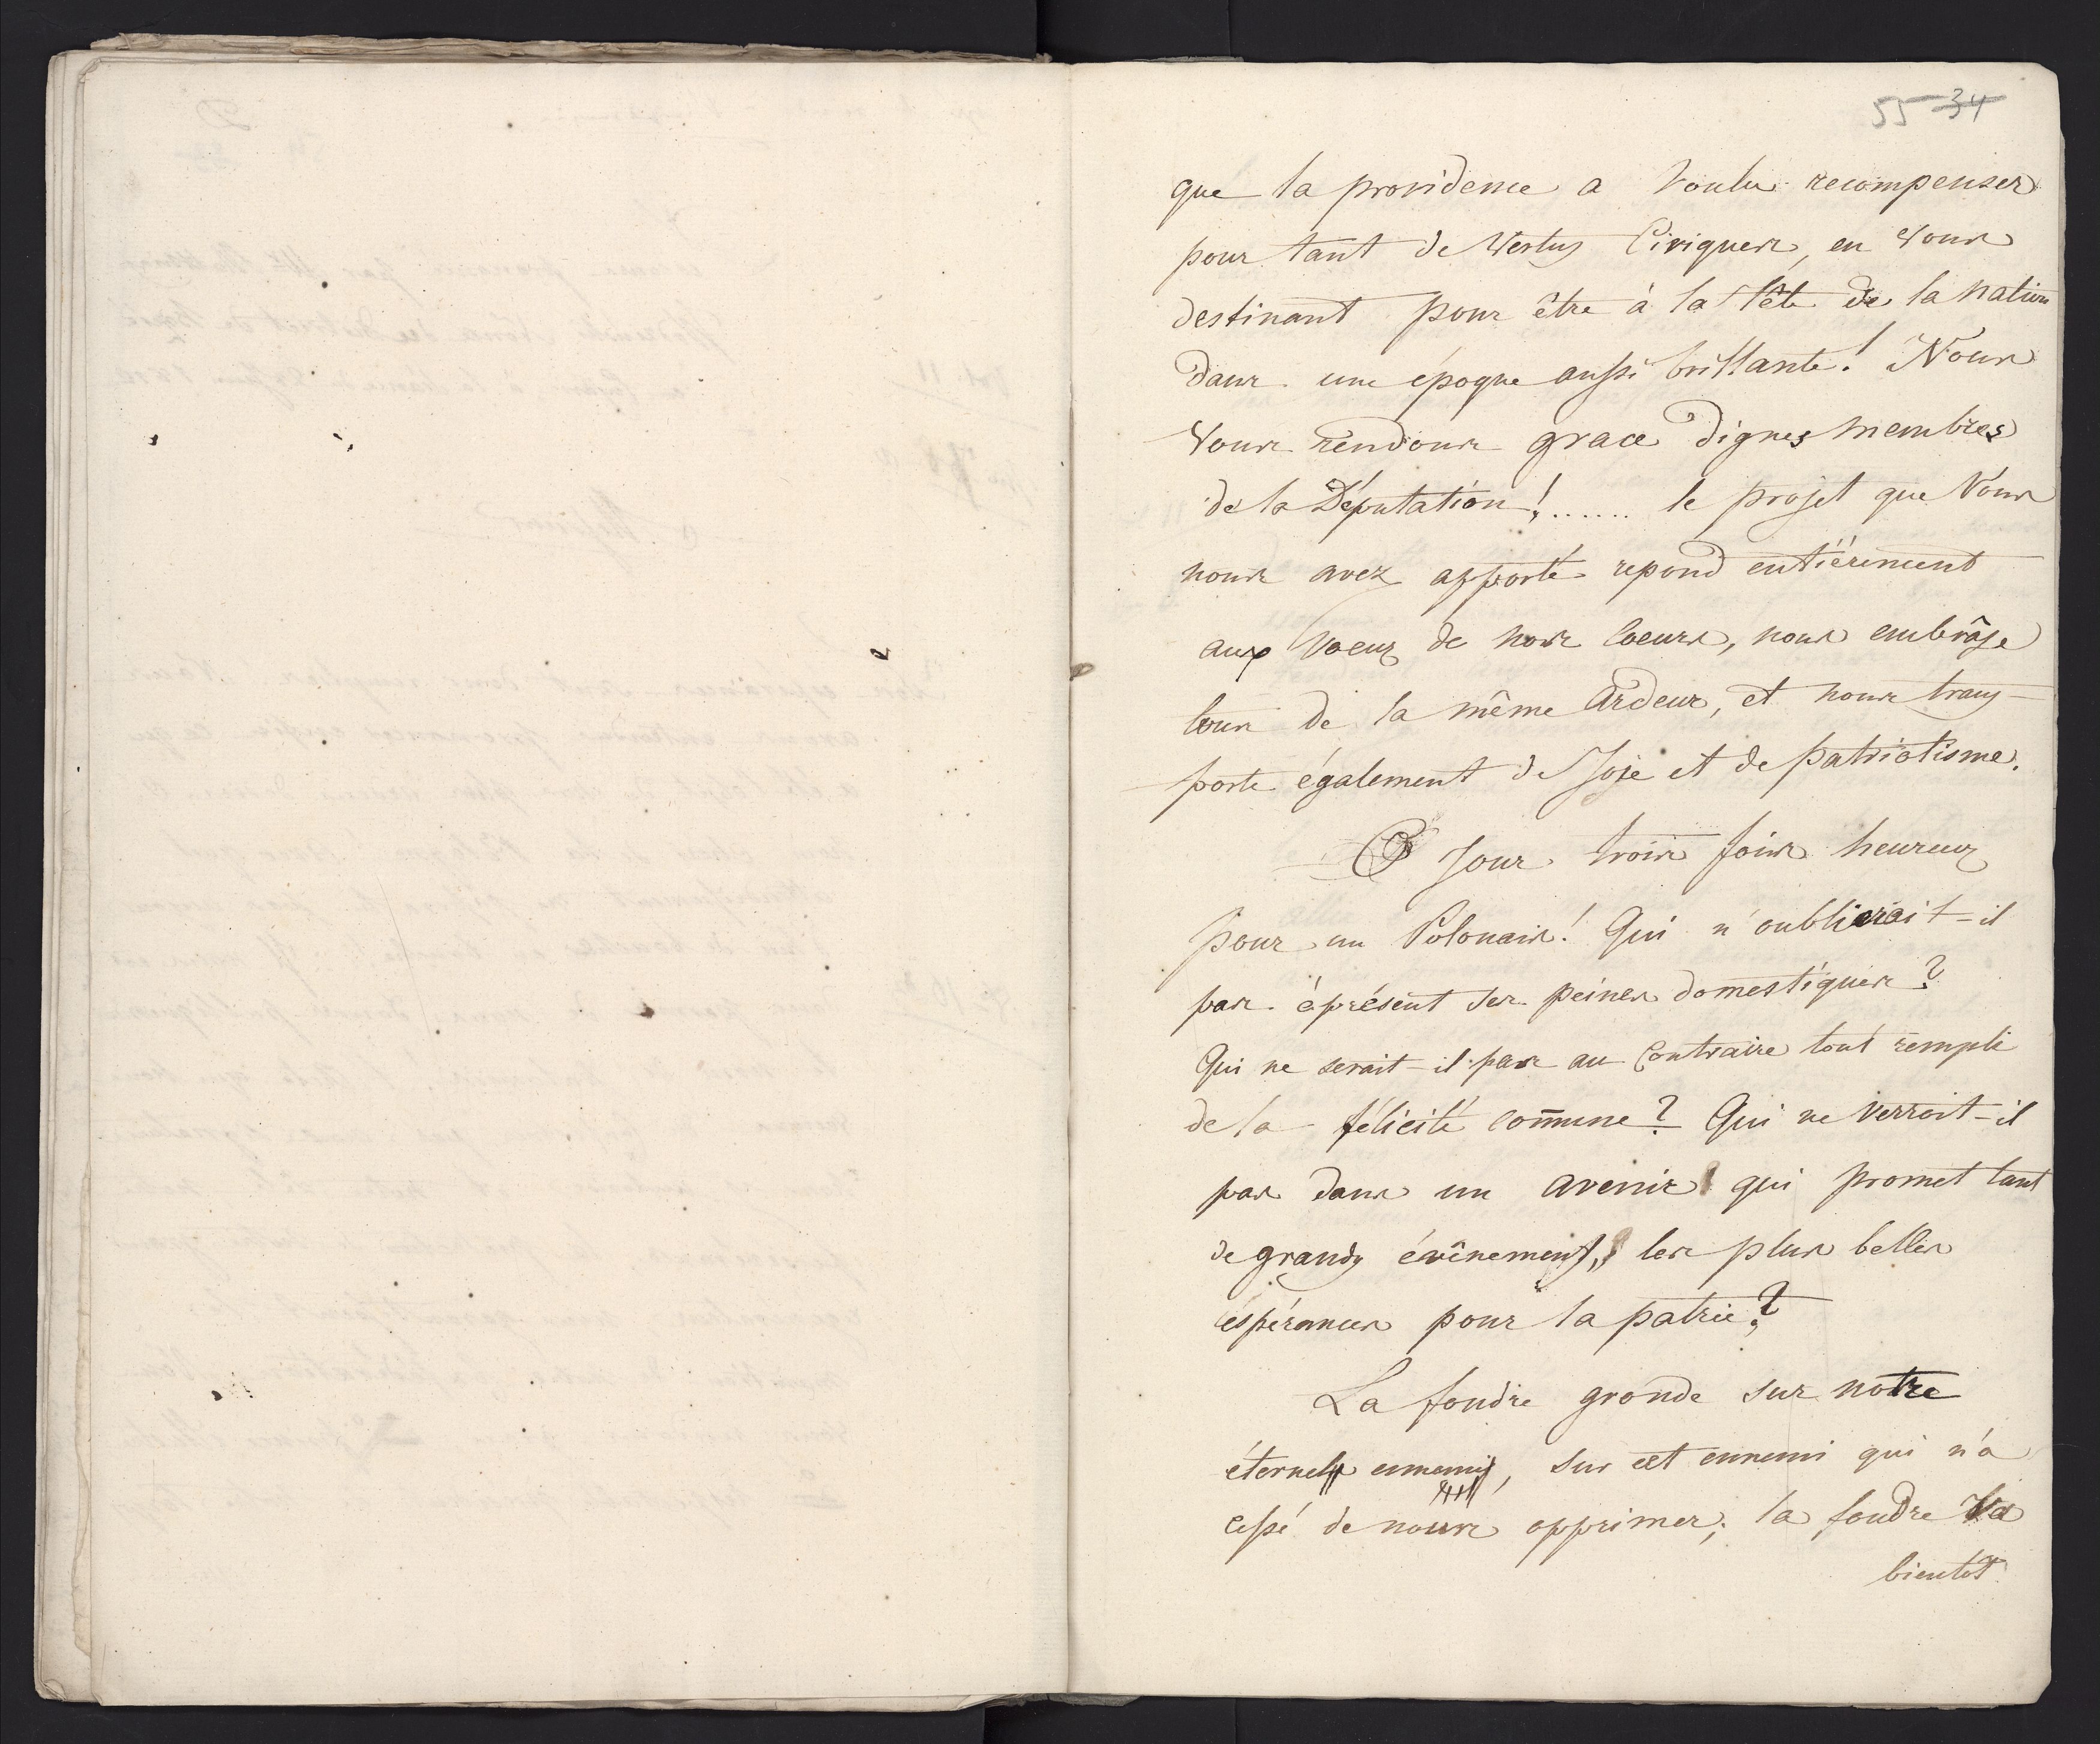 55 34
que la providence a voulu recompenser
pour tant de Vertus Civiques, en vous
destinant pour être à la tête de la nation
dans une époque aussi brillante! Nous
Vous rendons grace dignes membres
de la Députation!...... le projet que Vous
nous avez apporté repond entiérement
aux voeux de nos coeurs, nous embrâse
tous de la même Ardeur, et nous trans-
porte également de Joje et de patriotisme.
O Jour trois fois heureux
pour un Polonais! Qui n'oublierait-il
pas àprésent ses peines domestiques?
Qui ne serait-il pas au Contraire tout rempli
de la félicité com̄une? Qui ne verroit-il
pas dans un avenir qui promet tant
de grands évênemens, les plus belles
espérances pour la patrie?
La foudre gronde sur notre
éternel ennemi, sur cet ennemi qui n'a
cessé de nous opprimer; la foudre va
bientôt